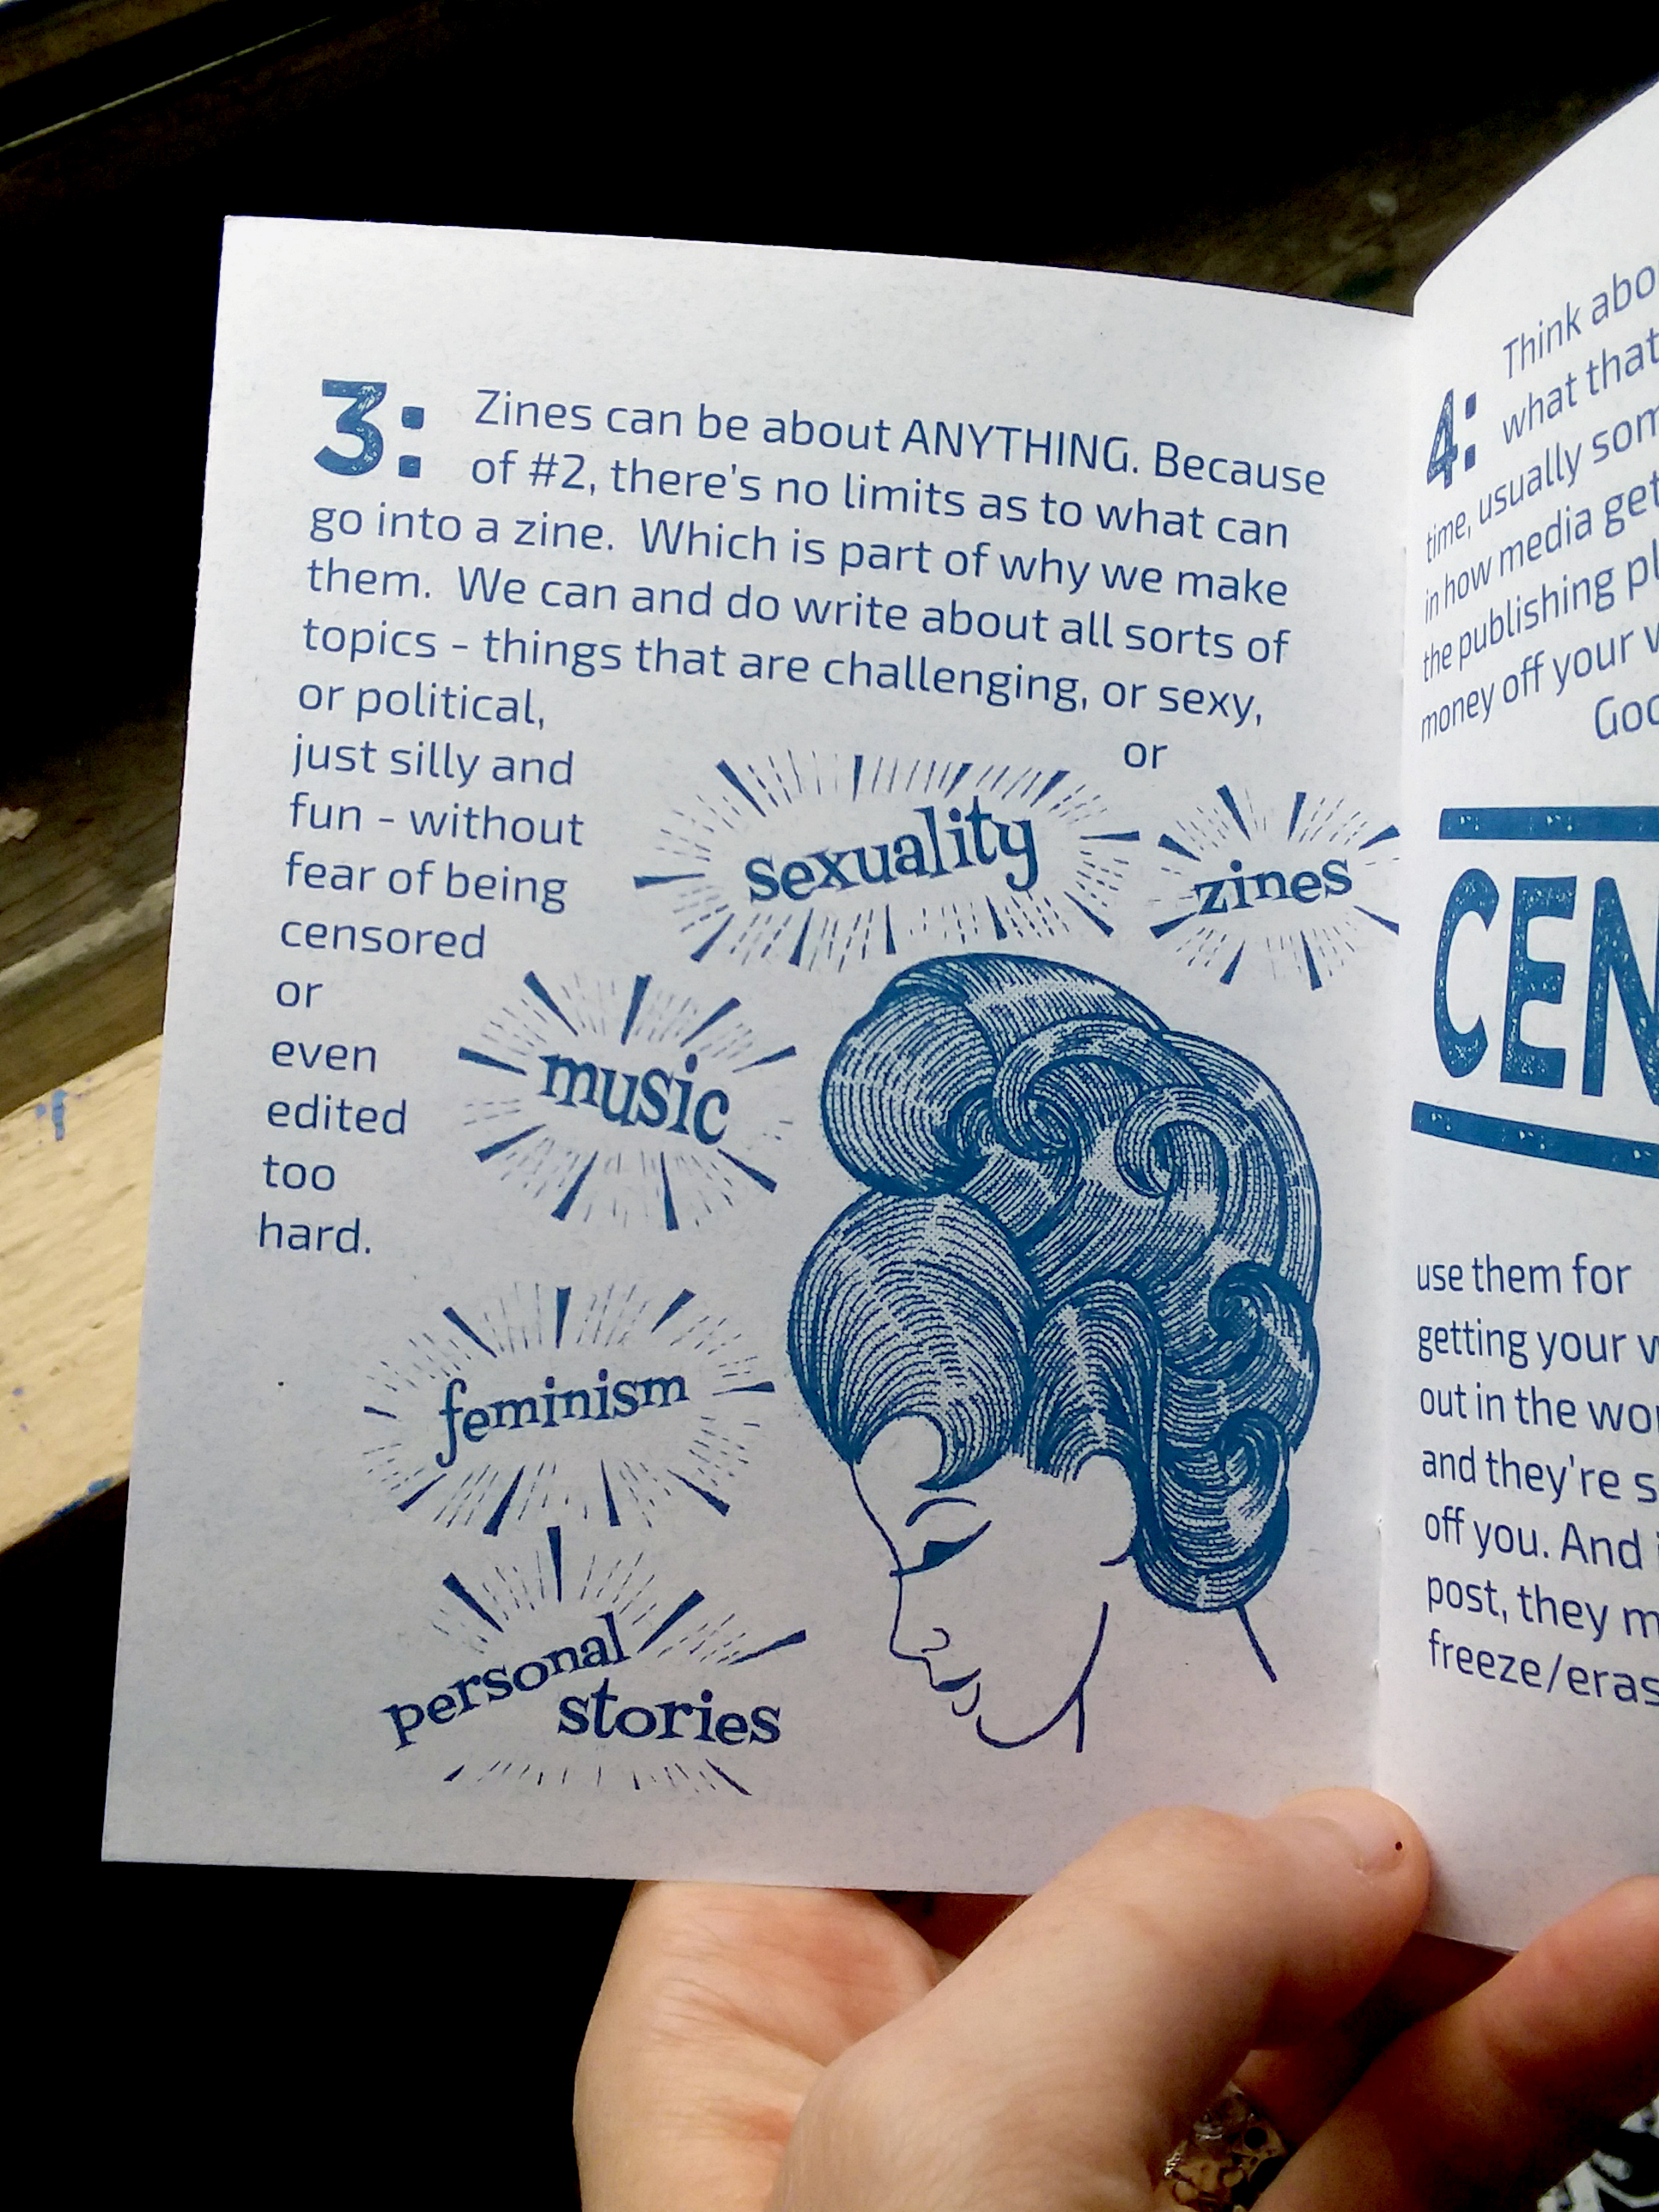 3:
Zines can be about ANYTHING. Because
of #2, there's no limits as to what can
go into a zine. Which is part of why we make
them. We can and do write about all sorts of
topics - things that are challenging, or sexy,
or political,
or
just silly and
fun - without
fear of being
censored
or
even
edited
too
hard.
sexuality
zines
music
feminism
personal
stories
4:
Think
what that
time, usually
in how media
the publishing
money off your
use them for
getting your
out in the
and they're
off you. And
post, they